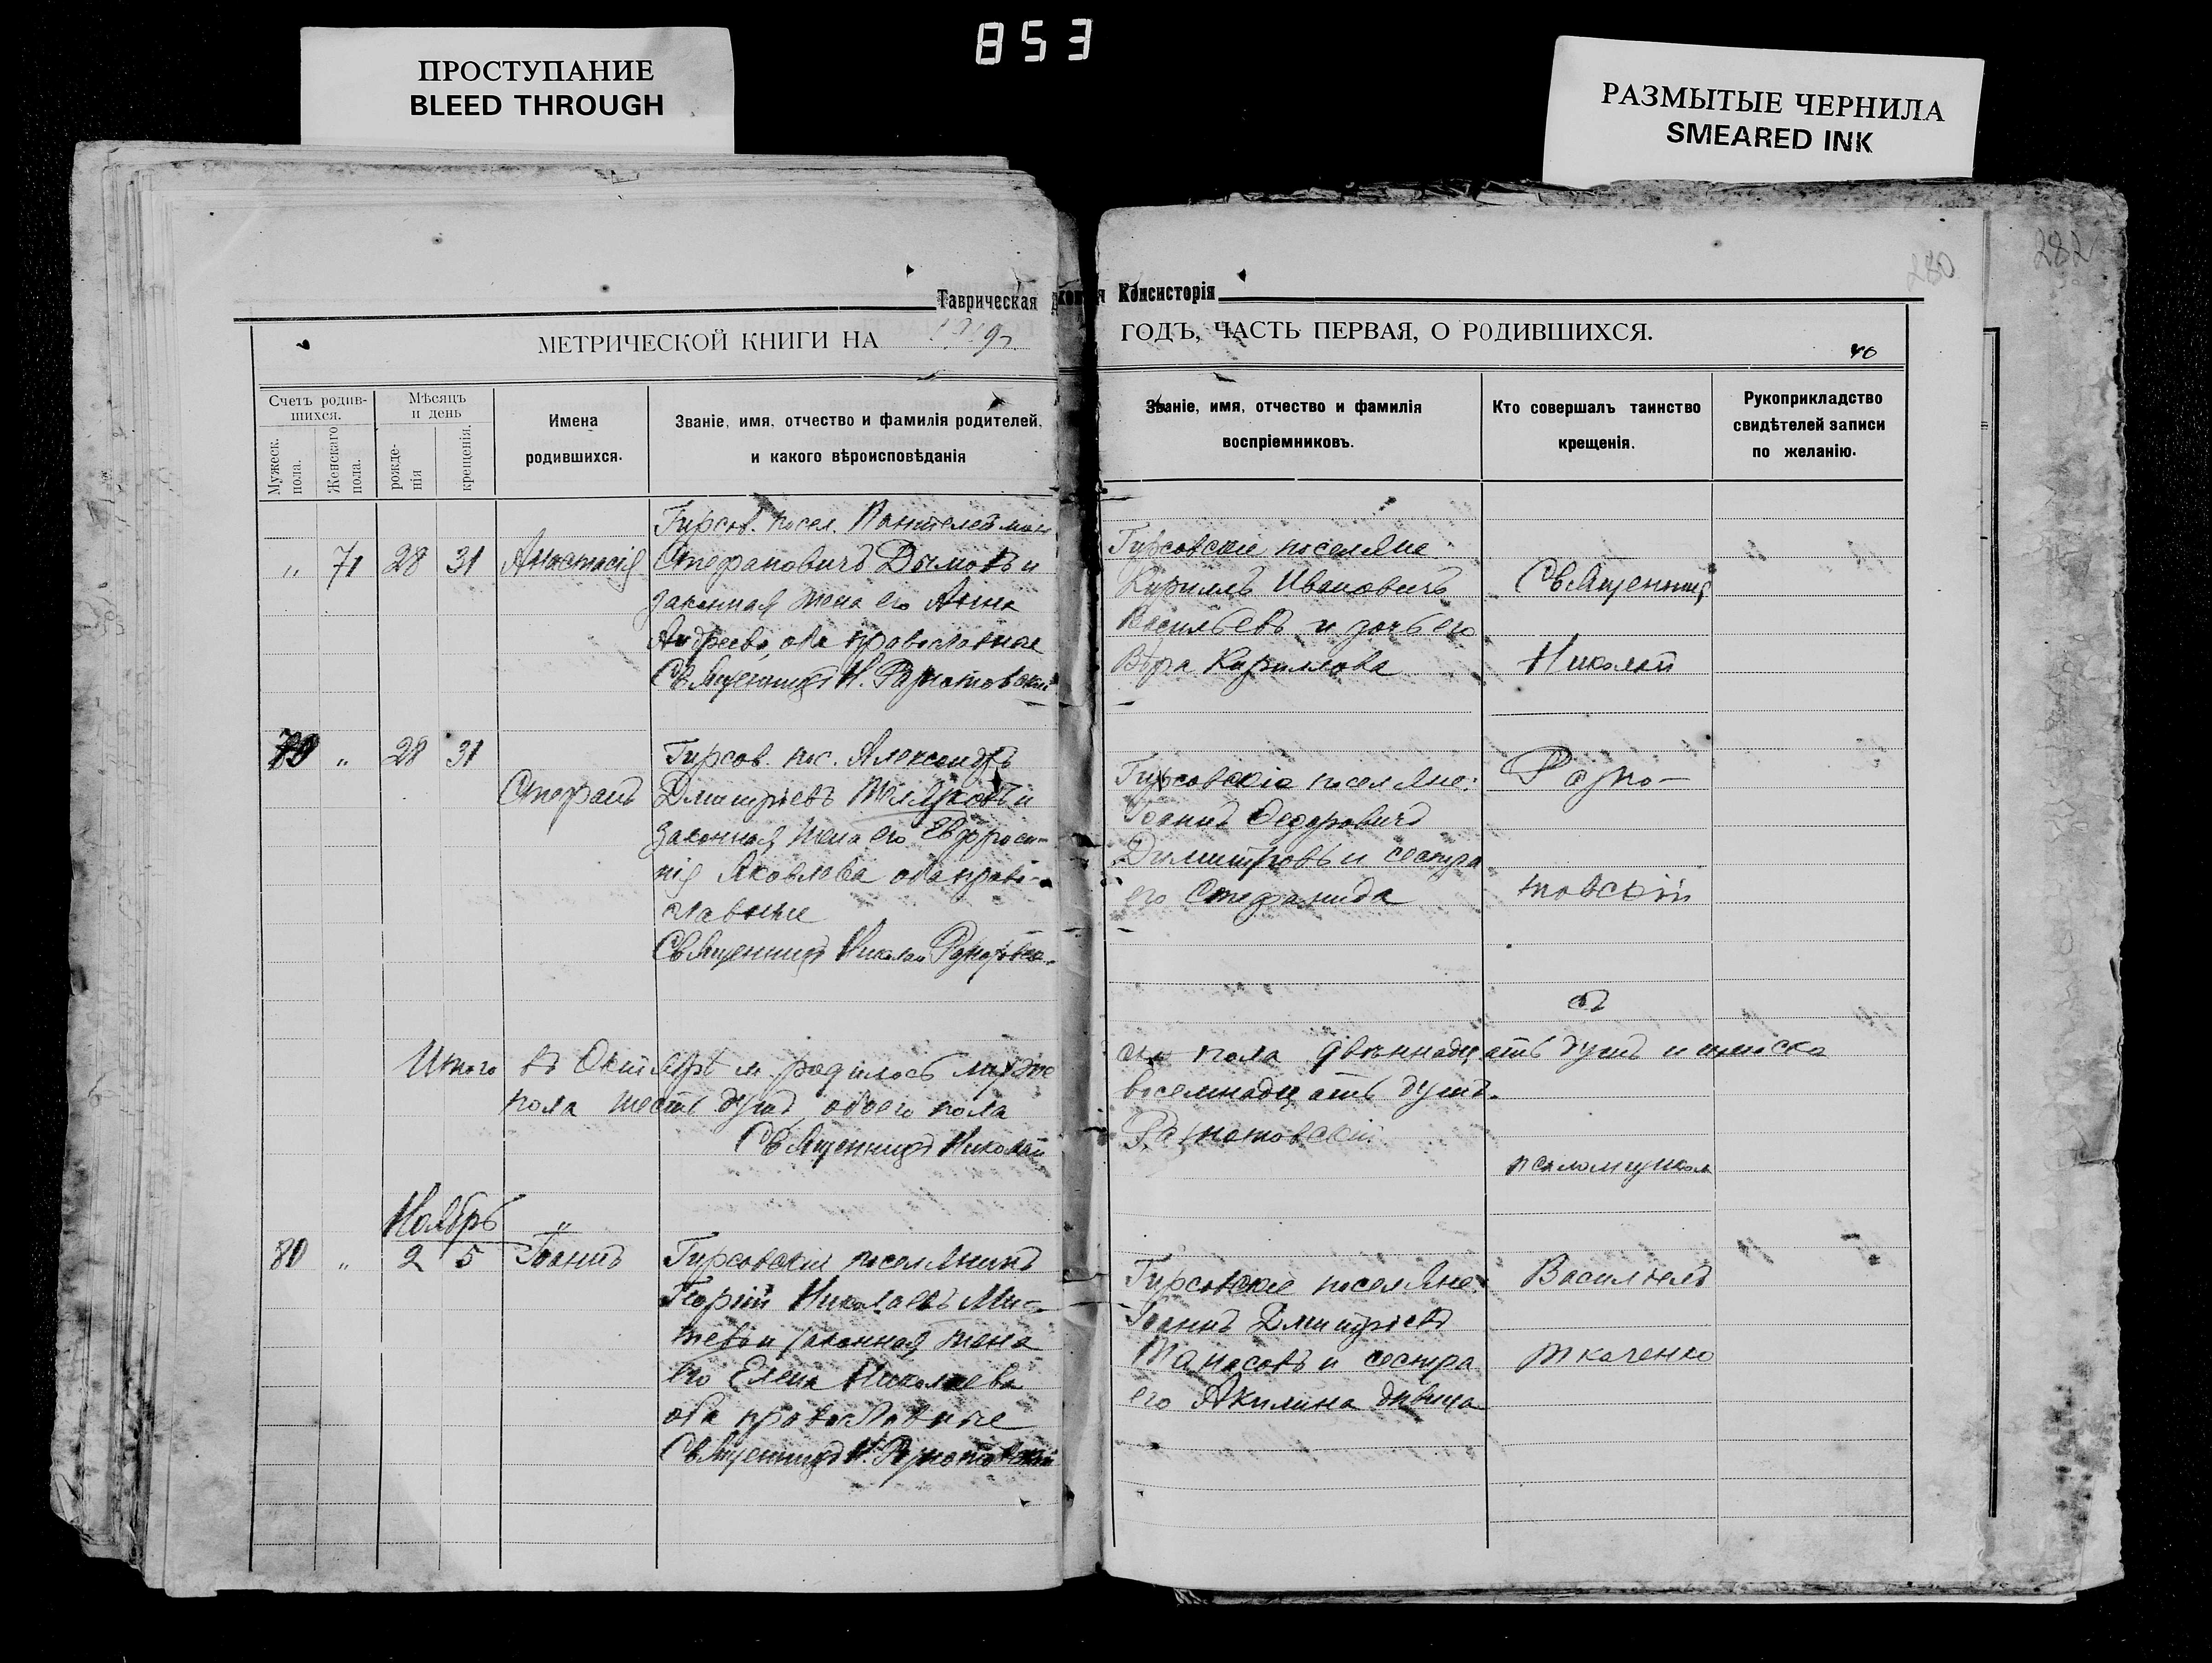 853
ПРОСТУПАНИЕ
BLEED THROUGH
РАЗМЫТЫЕ ЧЕРНИЛА
SMEARED INK
282
280
Таврическая
Консисторія
МЕТРИЧЕСКОЙ КНИГИ НА
ГОДЪ, ЧАСТЬ ПЕРВАЯ, О РОДИВШИХСЯ.
40
Счетъ родив-
шихся.
Мужеск.
пола.
Женскаго
пола.
Мѣсяцъ
и день
рожде-
нія
крещенія.
Имена
родившихся.
Званіе, имя, отчество и фамилія родителей,
и какого вѣроисповѣданія
Званіе, имя, отчество и фамилія
воспріемниковъ.
Кто совершалъ таинство
крещенія.
Рукоприкладство
свидѣтелей записи
по желанію.
Гирсов. посел. Пантелеймон
„ 71 28 31 Анастасія Стефановичъ Дымовъ и
законная жена его Анна
Андреева, оба православные
Священникъ Н. Разнатовскій
Гирсовские поселяне
Кириллъ Ивановичъ
Васильевъ и дочь его
Вѣра Кириллова
Священникъ
Николай
„ 28 31 Гирсов. пос. Александръ
Стефанъ Дмитріевъ и
законная жена его Евфроси-
нія Яковлева оба право-
славные
Священникъ Николай
Гирсовскіе поселяне:
Іоаннъ Федоровичъ
Димитровъ и сестра
его Стефанида
Разно-
товскій
съ
Итого въ Октябрѣ м. родилось муже
ск. пола двѣннадцать душъ и женска
пола шесть душъ, обоего пола
восемнадцать душъ.
Священникъ Николай
Разнотовскій
псаломщиком
Ноябрь
80 „ 2 5 Іоаннъ Гирсовскій поселянинъ
Георгій Николаевъ Ми-
тевъ и законная жена
его Елена Николаева
оба православные
Священникъ Н. Разнотовскій
Гирсовские поселяне:
Іоаннъ Дмитріевъ
Танасовъ и сестра
его Акилина дѣвица
Василіемъ
Ткаченко